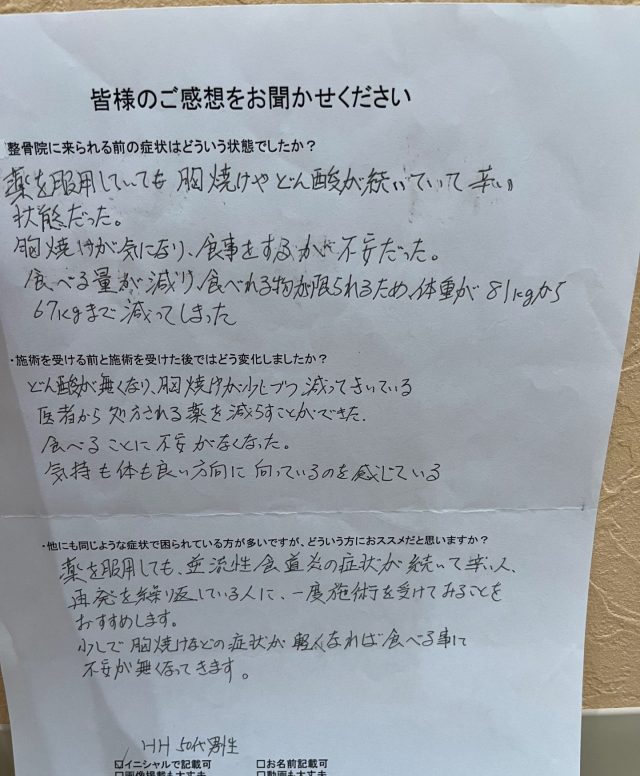 皆様のご感想をお聞かせください
整骨院に来られる前の症状はどういう状態でしたか？
薬を服用していても胸焼けやどん酸が続いていて辛い
状態だった。
胸焼けが気になり、食事をするが不安だった。
食べる量が減り、食べれる物が限られるため、体重が81kgから
67kgまで減ってしまった
・施術を受ける前と施術を受けた後ではどう変化しましたか？
どん酸が無くなり、胸焼けが少しづつ減ってきいている
医者から処方される薬を減らすことができた.
食べることに不安がなくなった。
気持も体も良い方向に向っているのを感じている
・他にも同じような症状で困られている方が多いですが、どういう方におススメだと思いますか？
薬を服用しても、逆流性食道炎の症状が続いて辛い人、
再発を繰り返している人に、一度施術を受けてみることを
おすすめします。
少しで胸焼けなどの症状が軽くなれば食べる事に
不安が無くなってきます。
HH 50代男生
☑イニシャルで記載可 □お名前記載可
□画像掲載も大丈夫 □動画も大丈夫